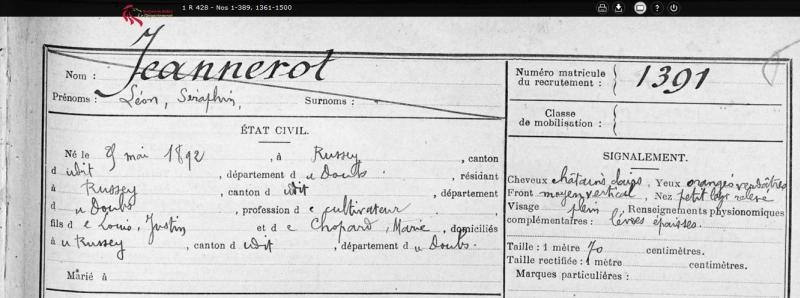 1 R 428 - Nos 1-389, 1361-1500
Nom : Jeannerot
Prénoms : Léon, Seraphin, Surnoms :
Numéro matricule du recrutement : 1391
Classe de mobilisation :
ÉTAT CIVIL.
Né le mai 1892, à Russey, canton
d udit, département du Doubs, résidant
à Russey, canton dudit, département
du Doubs, profession de cultivateur,
fils de Louis, Justin et de Chopard, Marie, domiciliés
à u Russey, canton dudit, département du Doubs.
Marié à
SIGNALEMENT.
Cheveux châtains clairs, Yeux orangés verdâtres
Front moyen vertical, Nez petit relevé
Visage plein, Renseignements physionomiques
complémentaires : lèvres épaisses.
Taille : 1 mètre 70 centimètres.
Taille rectifiée : 1 mètre centimètres.
Marques particulières :